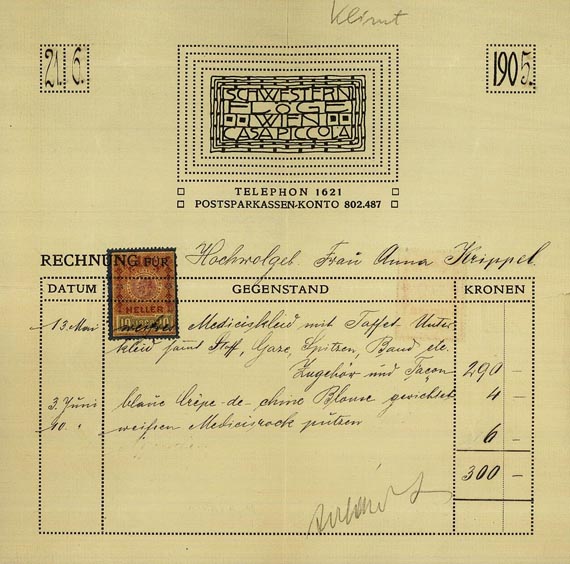 Klimt
21. 6. 1905.
SCHWESTERN
FLÖGE
WIEN
CASA PICCOLA
TELEPHON 1621
POSTSPARKASSEN-KONTO 802.487
RECHNUNG FÜR Hochwolgeb. Frau Anna Krippel.
DATUM GEGENSTAND KRONEN
HELLER
10
13. Mai weißes Mediciskleid mit Taffet Unter
kleid samt Stoff, Gaze, Spitzen, Band, etc.
Zugehör und Façon 290 –
3. Juni blaue Crêpe-de-chine Blouse gerichtet 4 –
weißen Medicisrock putzen 6 –
300 –